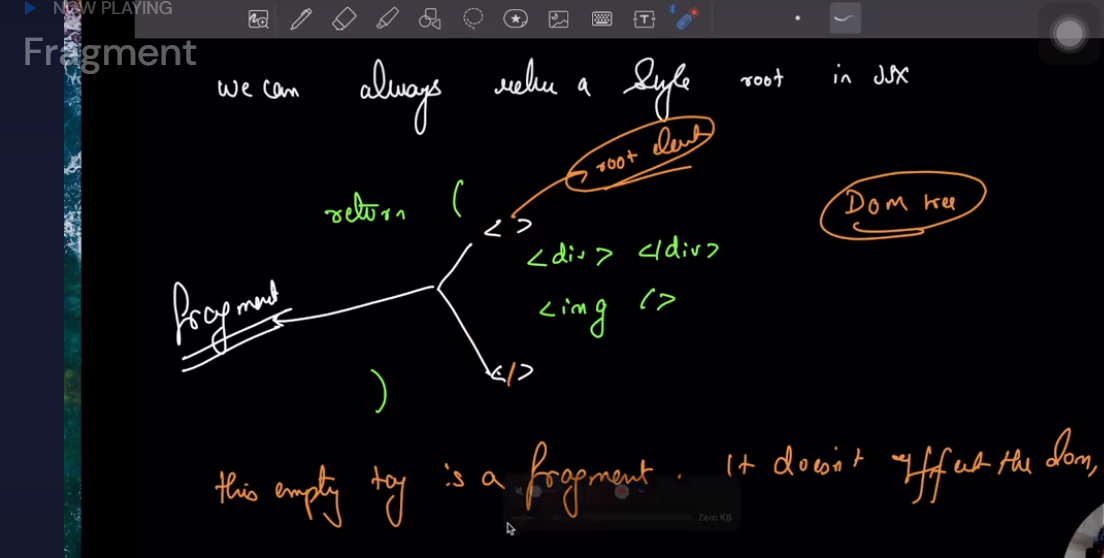 NOW PLAYING
Fragment
we can always return a single root in JSX
root element
return (
< >
Dom tree
<div> </div>
fragment
<img />
</>
)
this empty tag is a fragment. It doesn't effect the dom,
Zero KB